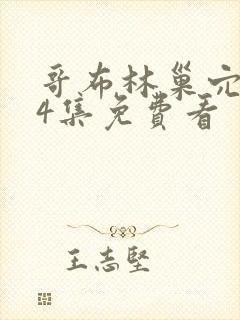 哥布林巢穴
4集免费看
王志坚